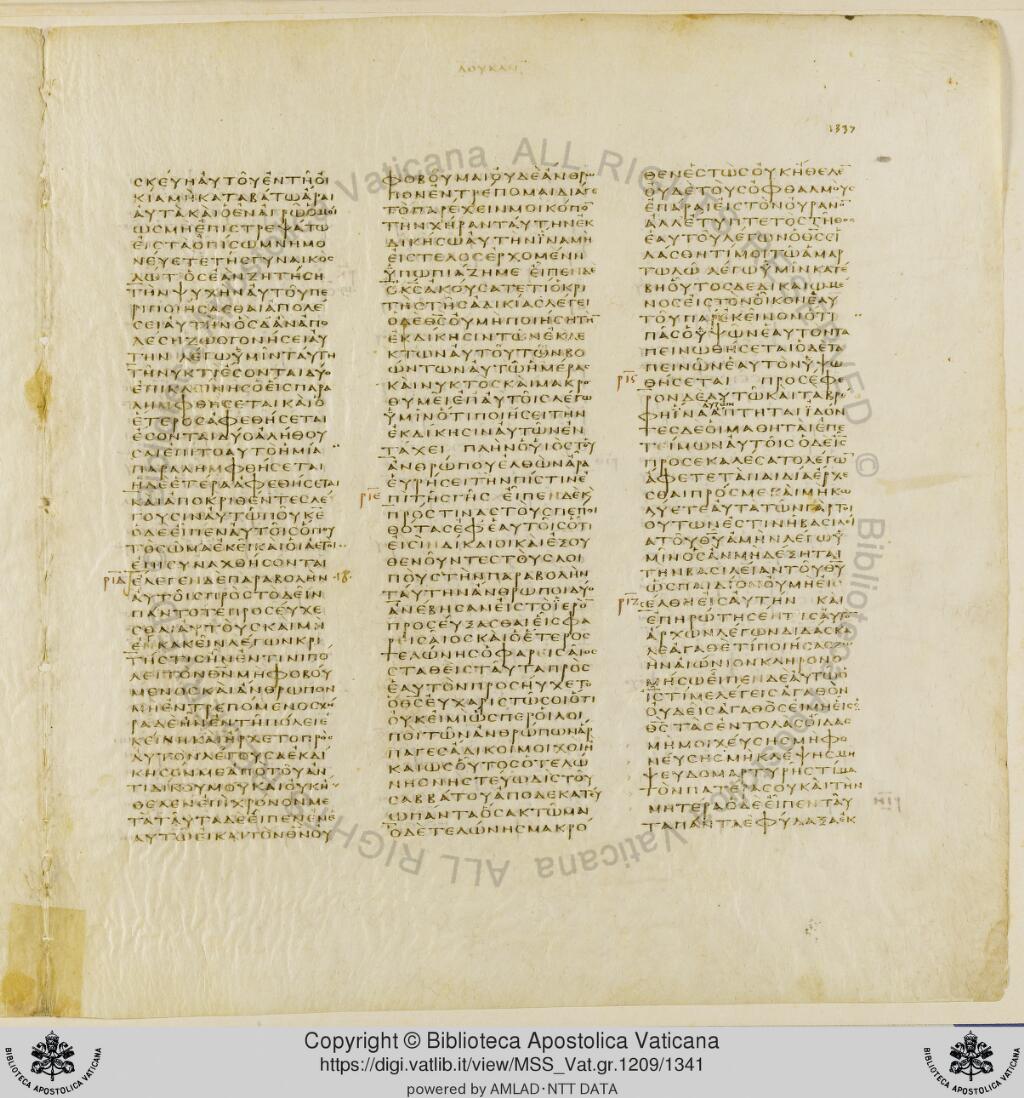 ΛΟΥΚΑΝ
1337
ϹΚΕΥΗΑΥΤΟΥΕΝΤΗΟΙ
ΚΙΑΜΗΚΑΤΑΒΑΤΩΑΡΑΙ
ΑΥΤΑΚΑΙΟΕΝΑΓΡΩΟΜΟΙ
ΩϹΜΗΕΠΙϹΤΡΕΨΑΤΩ
ΕΙϹΤΑΟΠΙϹΩΜΝΗΜΟ
ΝΕΥΕΤΕΤΗϹΓΥΝΑΙΚΟϹ
ΛΩΤΟϹΕΑΝΖΗΤΗϹΗ
ΤΗΝΨΥΧΗΝΑΥΤΟΥΠΕ
ΡΙΠΟΙΗϹΑϹΘΑΙΑΠΟΛΕ
ϹΕΙΑΥΤΗΝΟϹΔΑΝΑΠΟ
ΛΕϹΗΖΩΟΓΟΝΗϹΕΙΑΥ
ΤΗΝ ΛΕΓΩΥΜΙΝΤΑΥΤΗ
ΤΗΝΥΚΤΙΕϹΟΝΤΑΙΔΥΟ
ΕΠΙΚΛΕΙΝΗϹΟΕΙϹΠΑΡΑ
ΛΗΜΦΘΗϹΕΤΑΙΚΑΙΟ
ΕΤΕΡΟϹΑΦΕΘΗϹΕΤΑΙ
ΕϹΟΝΤΑΙΔΥΟΑΛΗΘΟΥ
ϹΑΙΕΠΙΤΟΑΥΤΟΗΜΙΑ
ΠΑΡΑΛΗΜΦΘΗϹΕΤΑΙ
ΗΔΕΕΤΕΡΑΑΦΕΘΗϹΕΤΑΙ
ΚΑΙΑΠΟΚΡΙΘΕΝΤΕϹΛΕ
ΓΟΥϹΙΝΑΥΤΩΠΟΥΚ̅Ε̅
ΟΔΕΕΙΠΕΝΑΥΤΟΙϹΟΠΟΥ
ΤΟϹΩΜΑΕΚΕΙΚΑΙΟΙΑΕΤΟΙ
ΕΠΙϹΥΝΑΧΘΗϹΟΝΤΑΙ
ΡΙΔ ΕΛΕΓΕΝΔΕΠΑΡΑΒΟΛΗΝ ·18·
ΑΥΤΟΙϹΠΡΟϹΤΟΔΕΙΝ
ΠΑΝΤΟΤΕΠΡΟϹΕΥΧΕ
ϹΘΑΙΑΥΤΟΥϹΚΑΙΜΗ
ΕΝΚΑΚΕΙΝΛΕΓΩΝΚΡΙ
ΤΗϹΤΙϹΗΝΕΝΤΙΝΙΠΟ
ΛΕΙΤΟΝΘ̅Ν̅ΜΗΦΟΒΟΥ
ΜΕΝΟϹΚΑΙΑΝΘΡΩΠΟΝ
ΜΗΕΝΤΡΕΠΟΜΕΝΟϹΧΗ
ΡΑΔΕΗΝΕΝΤΗΠΟΛΕΙΕ
ΚΕΙΝΗΚΑΙΗΡΧΕΤΟΠΡΟϹ
ΑΥΤΟΝΛΕΓΟΥϹΑΕΚΔΙ
ΚΗϹΟΝΜΕΑΠΟΤΟΥΑΝ
ΤΙΔΙΚΟΥΜΟΥΚΑΙΟΥΚΗ
ΘΕΛΕΝΕΠΙΧΡΟΝΟΝΜΕ
ΤΑΤΑΥΤΑΔΕΕΙΠΕΝΕΝΕ
ΑΥΤΩΕΙΚΑΙΤΟΝΘ̅Ν̅ΟΥ
ΦΟΒΟΥΜΑΙΟΥΔΕΑΝΘΡΩ
ΠΟΝΕΝΤΡΕΠΟΜΑΙΔΙΑΓΕ
ΤΟΠΑΡΕΧΕΙΝΜΟΙΚΟΠΟ̅
ΤΗΝΧΗΡΑΝΤΑΥΤΗΝΕΚ
ΔΙΚΗϹΩΑΥΤΗΝΙΝΑΜΗ
ΕΙϹΤΕΛΟϹΕΡΧΟΜΕΝΗ
ΥΠΩΠΙΑΖΗΜΕ ΕΙΠΕΝΔΕ
ΟΚ̅Ϲ̅ΑΚΟΥϹΑΤΕΤΙΟΚΡΙ
ΤΗϹΤΗϹΑΔΙΚΙΑϹΛΕΓΕΙ
ΟΔΕΘ̅Ϲ̅ΟΥΜΗΠΟΙΗϹΗΤΗ̅
ΕΚΔΙΚΗϹΙΝΤΩΝΕΚΛΕ
ΚΤΩΝΑΥΤΟΥΤΩΝΒΟ
ΩΝΤΩΝΑΥΤΩΗΜΕΡΑϹ
ΚΑΙΝΥΚΤΟϹΚΑΙΜΑΚΡΟ
ΘΥΜΕΙΕΠΑΥΤΟΙϹΛΕΓΩ
ΥΜΙΝΟΤΙΠΟΙΗϹΕΙΤΗΝ
ΕΚΔΙΚΗϹΙΝΑΥΤΩΝΕΝ
ΤΑΧΕΙ ΠΛΗΝΟΥΙΟϹΤΟΥ
ΑΝΘΡΩΠΟΥΕΛΘΩΝΑΡΑ
ΕΥΡΗϹΕΙΤΗΝΠΙϹΤΙΝΕ
ΡΙΕ ΠΙΤΗϹΓΗϹ ΕΙΠΕΝΔΕΚΑΙ
ΠΡΟϹΤΙΝΑϹΤΟΥϹΠΕΠΟΙ
ΘΟΤΑϹΕΦΕΑΥΤΟΙϹΟΤΙ
ΕΙϹΙΝΔΙΚΑΙΟΙΚΑΙΕΞΟΥ
ΘΕΝΟΥΝΤΕϹΤΟΥϹΛΟΙ
ΠΟΥϹΤΗΝΠΑΡΑΒΟΛΗΝ
ΤΑΥΤΗΝΑΝΘΡΩΠΟΙΔΥΟ
ΑΝΕΒΗϹΑΝΕΙϹΤΟΙΕΡΟ̅
ΠΡΟϹΕΥΞΑϹΘΑΙΕΙϹΦΑ
ΡΕΙϹΑΙΟϹΚΑΙΟΕΤΕΡΟϹ
ΤΕΛΩΝΗϹΟΦΑΡΕΙϹΑΙΟϹ
ϹΤΑΘΕΙϹΤΑΥΤΑΠΡΟϹ
ΕΑΥΤΟΝΠΡΟϹΗΥΧΕΤΟ
ΟΘ̅Ϲ̅ΕΥΧΑΡΙϹΤΩϹΟΙΟΤΙ
ΟΥΚΕΙΜΙΩϹΠΕΡΟΙΛΟΙ
ΠΟΙΤΩΝΑΝΘΡΩΠΩΝΑΡ
ΠΑΓΕϹΑΔΙΚΟΙΜΟΙΧΟΙΗ
ΚΑΙΩϹΟΥΤΟϹΟΤΕΛΩ
ΝΗϹΝΗϹΤΕΥΩΔΙϹΤΟΥ
ϹΑΒΒΑΤΟΥΑΠΟΔΕΚΑΤΕΥ
ΩΠΑΝΤΑΟϹΑΚΤΩΜΑΙ
ΟΔΕΤΕΛΩΝΗϹΜΑΚΡΟ
ΘΕΝΕϹΤΩϹΟΥΚΗΘΕΛΕ̅
ΟΥΔΕΤΟΥϹΟΦΘΑΛΜΟΥϹ
ΕΠΑΡΑΙΕΙϹΤΟΝΟΥΡΑΝΟ̅
ΑΛΛΕΤΥΠΤΕΤΟϹΤΗΘΟϹ
ΕΑΥΤΟΥΛΕΓΩΝΟΘ̅Ϲ̅ΙΛΑϹ
ΛΑϹΘΗΤΙΜΟΙΤΩΑΜΑΡ
ΤΩΛΩ ΛΕΓΩΥΜΙΝΚΑΤΕ
ΒΗΟΥΤΟϹΔΕΔΙΚΑΙΩΜΕ
ΝΟϹΕΙϹΤΟΝΟΙΚΟΝΕΑΥ
ΤΟΥΠΑΡΕΚΕΙΝΟΝΟΤΙ
ΠΑϹΟΥΨΩΝΕΑΥΤΟΝΤΑ
ΠΕΙΝΩΘΗϹΕΤΑΙΟΔΕΤΑ
ΠΕΙΝΩΝΕΑΥΤΟΝΥΨΩ
ΡΙϚ ΘΗϹΕΤΑΙ ΠΡΟϹΕΦΕ
ΡΟΝΔΕΑΥΤΩΚΑΙΤΑΒΡΕ
ΦΗΙΝΑΑΥΤΩΝΑΠΤΗΤΑΙΙΔΟΝ
ΤΕϹΔΕΟΙΜΑΘΗΤΑΙΕΠΕ
ΤΕΙΜΩΝΑΥΤΟΙϹΟΔΕΙ̅Ϲ̅
ΠΡΟϹΕΚΑΛΕϹΑΤΟΛΕΓΩ̅
ΑΦΕΤΕΤΑΠΑΙΔΙΑΕΡΧΕ
ϹΘΑΙΠΡΟϹΜΕΚΑΙΜΗΚΩ
ΛΥΕΤΕΑΥΤΑΤΩΝΓΑΡΤΟΙ
ΟΥΤΩΝΕϹΤΙΝΗΒΑϹΙΛΕΙ
ΑΤΟΥΘ̅Υ̅ΑΜΗΝΛΕΓΩΥ
ΜΙΝΟϹΑΝΜΗΔΕΞΗΤΑΙ
ΤΗΝΒΑϹΙΛΕΙΑΝΤΟΥΘ̅Υ̅
ΩϹΠΑΙΔΙΟΝΟΥΜΗΕΙϹ
ΡΙΖ ΕΛΘΗΕΙϹΑΥΤΗΝ ΚΑΙ
ΕΠΗΡΩΤΗϹΕΝΤΙϹΑΥΤΟ̅
ΑΡΧΩΝΛΕΓΩΝΔΙΔΑϹΚΑ
ΛΕΑΓΑΘΕΤΙΠΟΙΗϹΑϹΖΩ
ΗΝΑΙΩΝΙΟΝΚΛΗΡΟΝΟ
ΜΗϹΩΕΙΠΕΝΔΕΑΥΤΩΟ
Ι̅Ϲ̅ΤΙΜΕΛΕΓΕΙϹΑΓΑΘΟΝ
ΟΥΔΕΙϹΑΓΑΘΟϹΕΙΜΗΕΙϹ
Θ̅Ϲ̅ΤΑϹΕΝΤΟΛΑϹΟΙΔΑϹ
ΜΗΜΟΙΧΕΥϹΗϹΜΗΦΟ
ΝΕΥϹΗϹΜΗΚΛΕΨΗϹΜΗ
ΨΕΥΔΟΜΑΡΤΥΡΗϹΤΙΜΑ
ΤΟΝΠΑΤΕΡΑϹΟΥΚΑΙΤΗΝ
ΜΗΤΕΡΑΟΔΕΕΙΠΕΝΤΑΥ
ΤΑΠΑΝΤΑΕΦΥΛΑΞΑΕΚ
Copyright © Biblioteca Apostolica Vaticana
https://digi.vatlib.it/view/MSS_Vat.gr.1209/1341
powered by AMLAD·NTT DATA